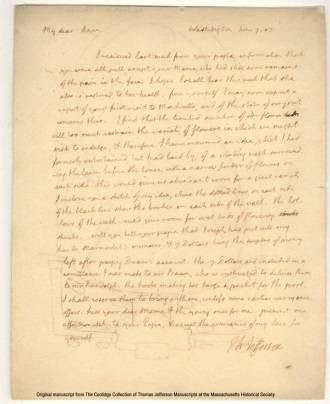 My dear Anne Washington June 7. 07
I received last week from your papa information that
you were all well except your Mama, who had still some remains
of the pain in the face. I hope I shall hear this week that she
also is restored to her health. from yourself I may soon expect a
report of your first visit to Monticello, and of the state of our joint
concerns there. I find that the limited number of our flower beds
will too much restrain the variety of flowers in which we might
wish to indulge, & therefore I have resumed an idea, which I had
formerly entertained, but had laid by, of a winding walk surround-
ing the lawn before the house, with a narrow border of flowers on
each side. this would give us abundant room for a great variety.
I inclose you a sketch of my idea, where the dotted lines on each side
of the black line shew the border on each side of the walk. the hol-
lows of the walk would give room for oval beds of flowering
shrubs. will you tell your papa that Joseph has put into my
hands 7 Dollars being the surplus of money
left after paying account. the 7 Dollars are included in a
remittance I now make to mr who is instructed to deliver them
to mr Randolph. the books making too large a packet for the post,
I shall reserve them to bring with me, unless some earlier conveyance
offers. kiss your dear Mama & the young ones for me, present me
affectionately to your Papa, & accept the assurances of my love for
yourself
Th: Jefferson
Original manuscript from the Coolidge Collection of Thomas Jefferson Manuscripts at the Massachusetts Historical Society